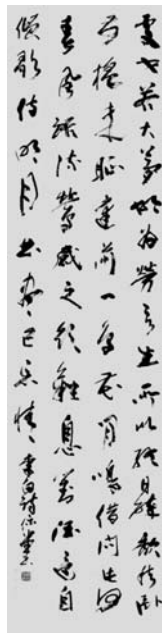 處世若大夢胡為勞其生所以終日醉頹然臥
前楹來眄庭前一鳥花間鳴借問此何
春風語流鶯感之欲歎息對酒還自
傾歌待明月曲盡已忘情李白詩